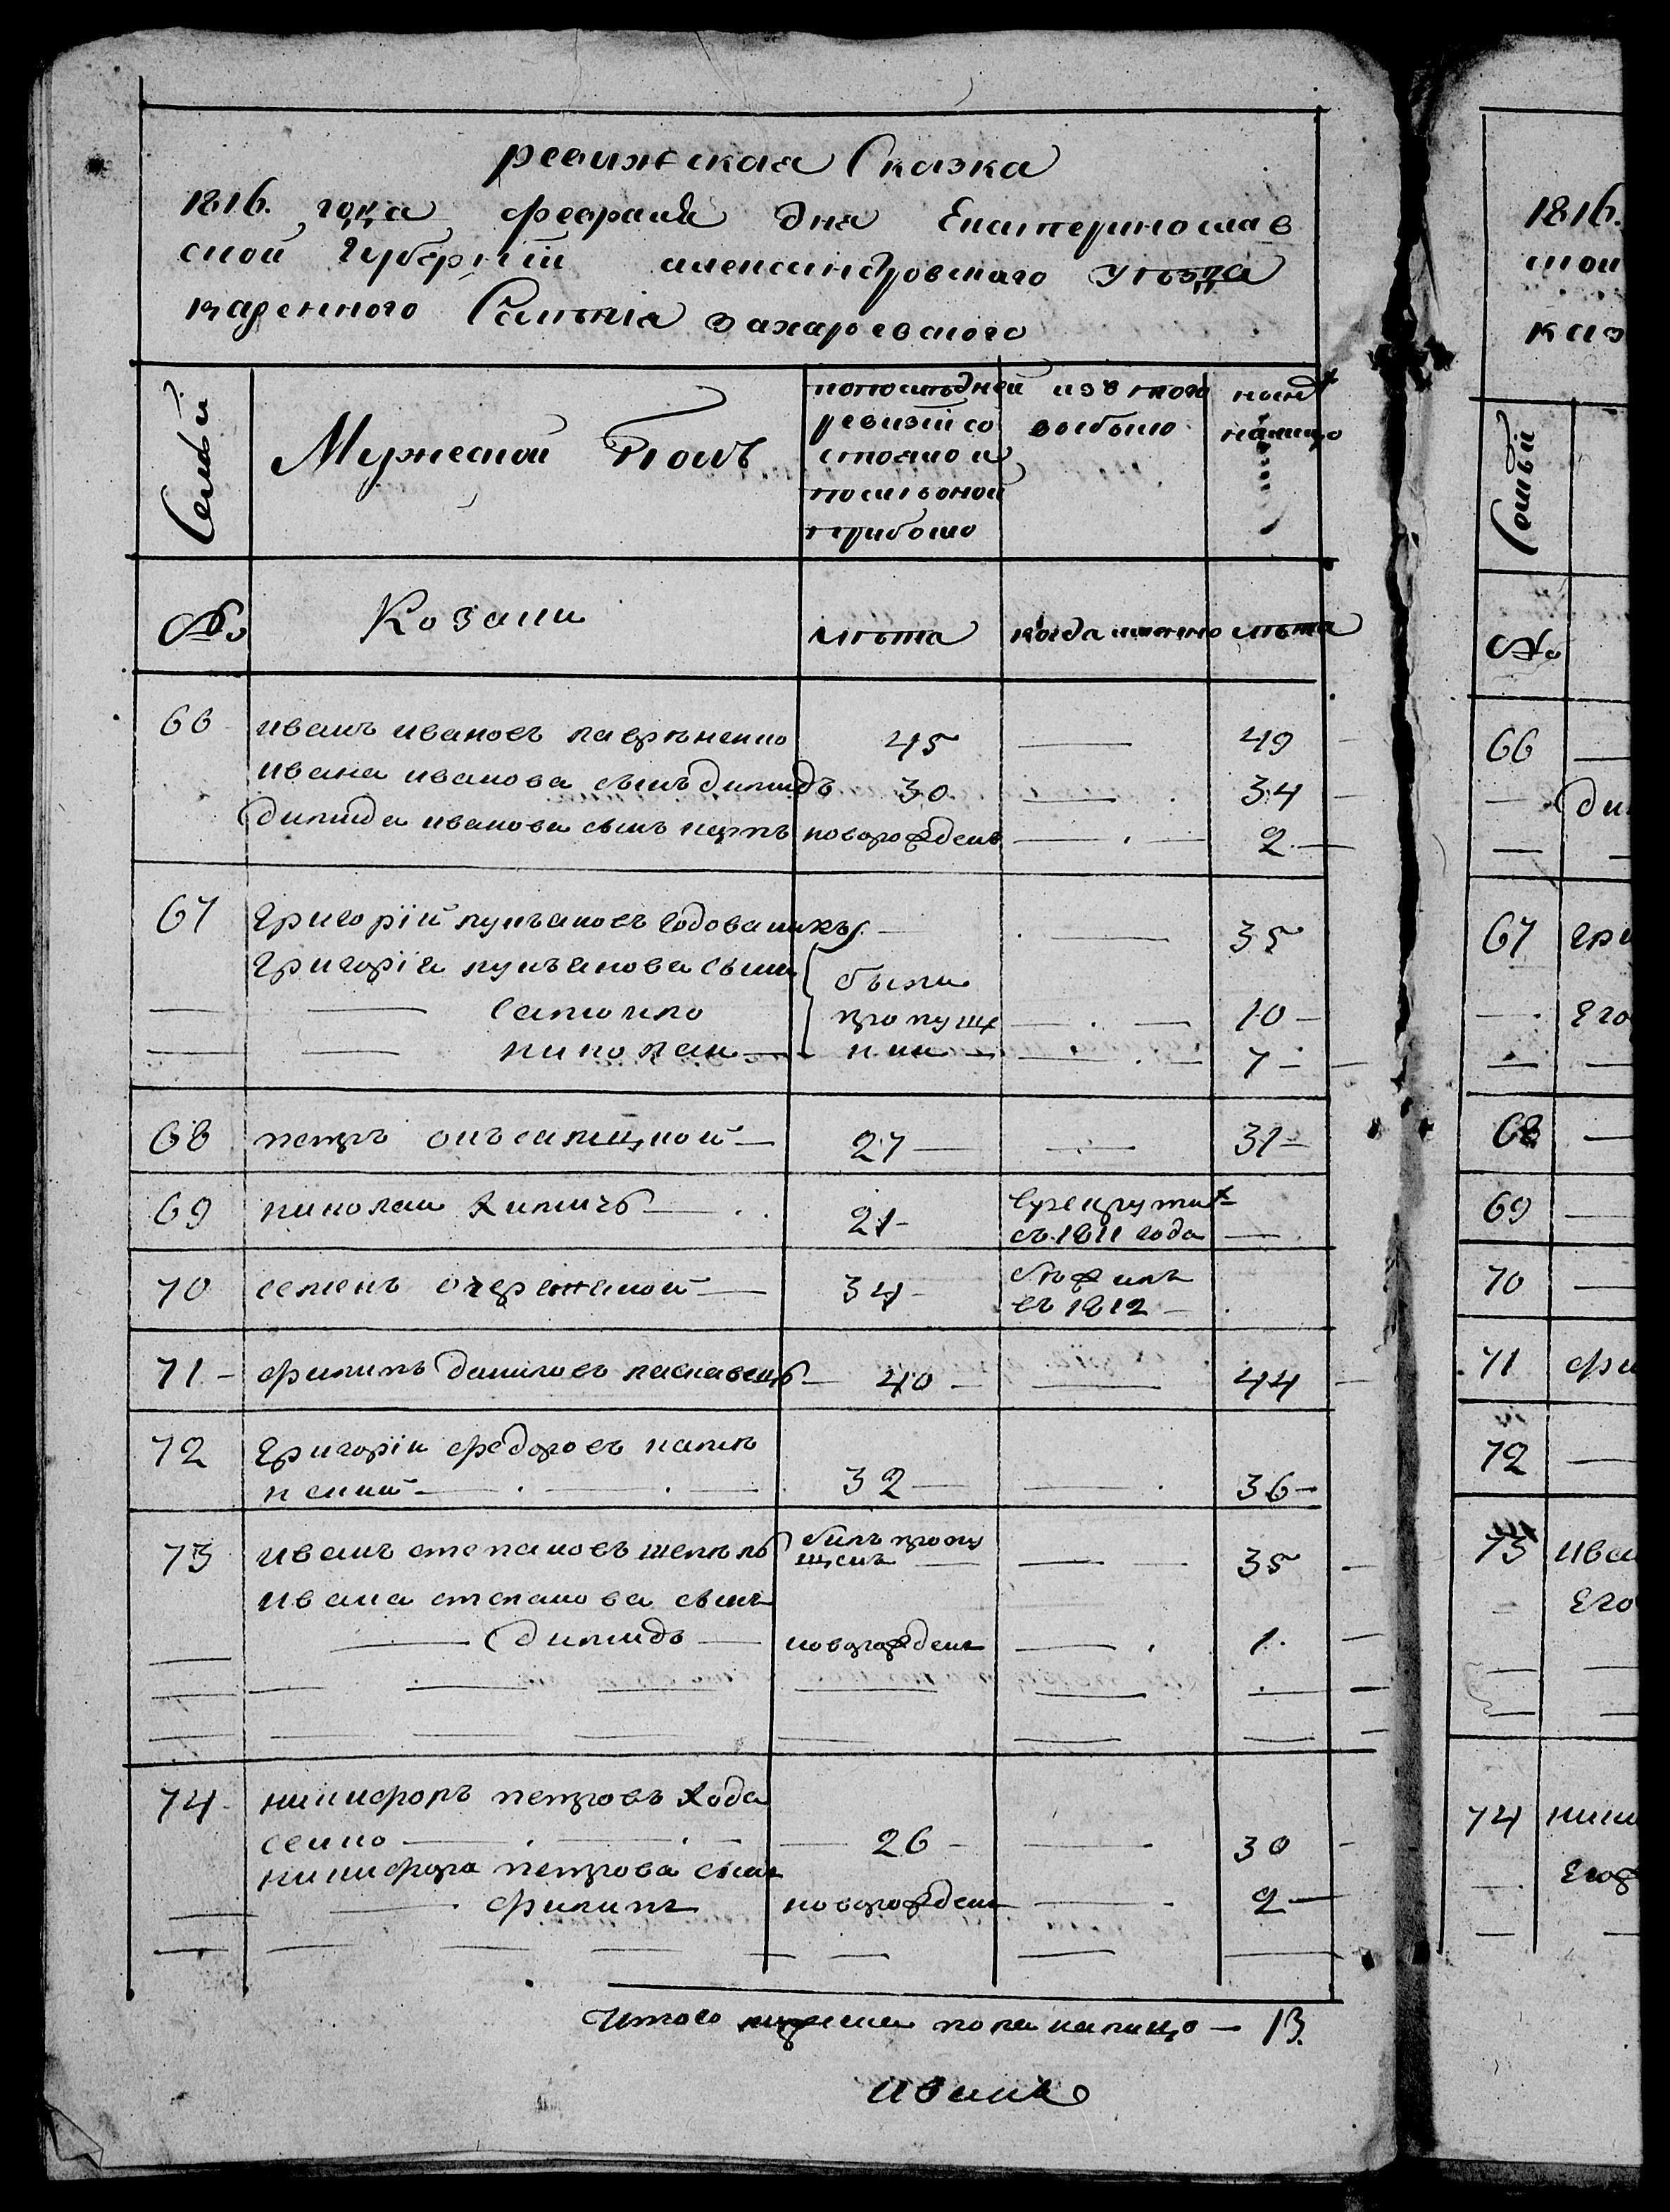 ревижская Сказка
1816. года февраля дня Екатеринослав
ской Губернїи александровского уѣзда
казенного Селенїя захарьевского
Семьи
Мужеской Полъ
попослѣдней
ревизїи со
стояло и
после оной
прибыло
изъ того
выбыло
ныне
налицо
№
Козаки
лѣта
когда именно
лѣта
66 иванъ ивановъ лаврѣненко 45 — 49
ивана иванова сынъ димидъ 30 — 34
димида иванова сынъ петръ новорожденъ — 2
67 григорїй лукъяновъ годованикъ — 35
григорїя лукъянова сыни
самойло 10
николай 7
были
пропущ
нии
68 петръ 27 — 31
69 николай химичь 21
в рекруты
съ 1811 года
70 семенъ 34
бѣжилъ
въ 1812
71 филипъ даниловъ ласкавецъ 40 — 44
72 григорїй федоровъ
32 — 36
73 иванъ степановъ шепель
билъ пропу
щенъ — 35
ивана степанова сынъ
димидъ новорожденъ — 1
74 никифоръ петровъ хода
сенко 26 — 30
никифора петрова сынъ
филипъ новорожденъ — 2
Итого мужеска пола налицо — 13.
1816.
ской
каз
Семьи
№
66
ди
67 гри
Его
68
69
70
71 фи
72
73 ива
Его
74 ники
Его